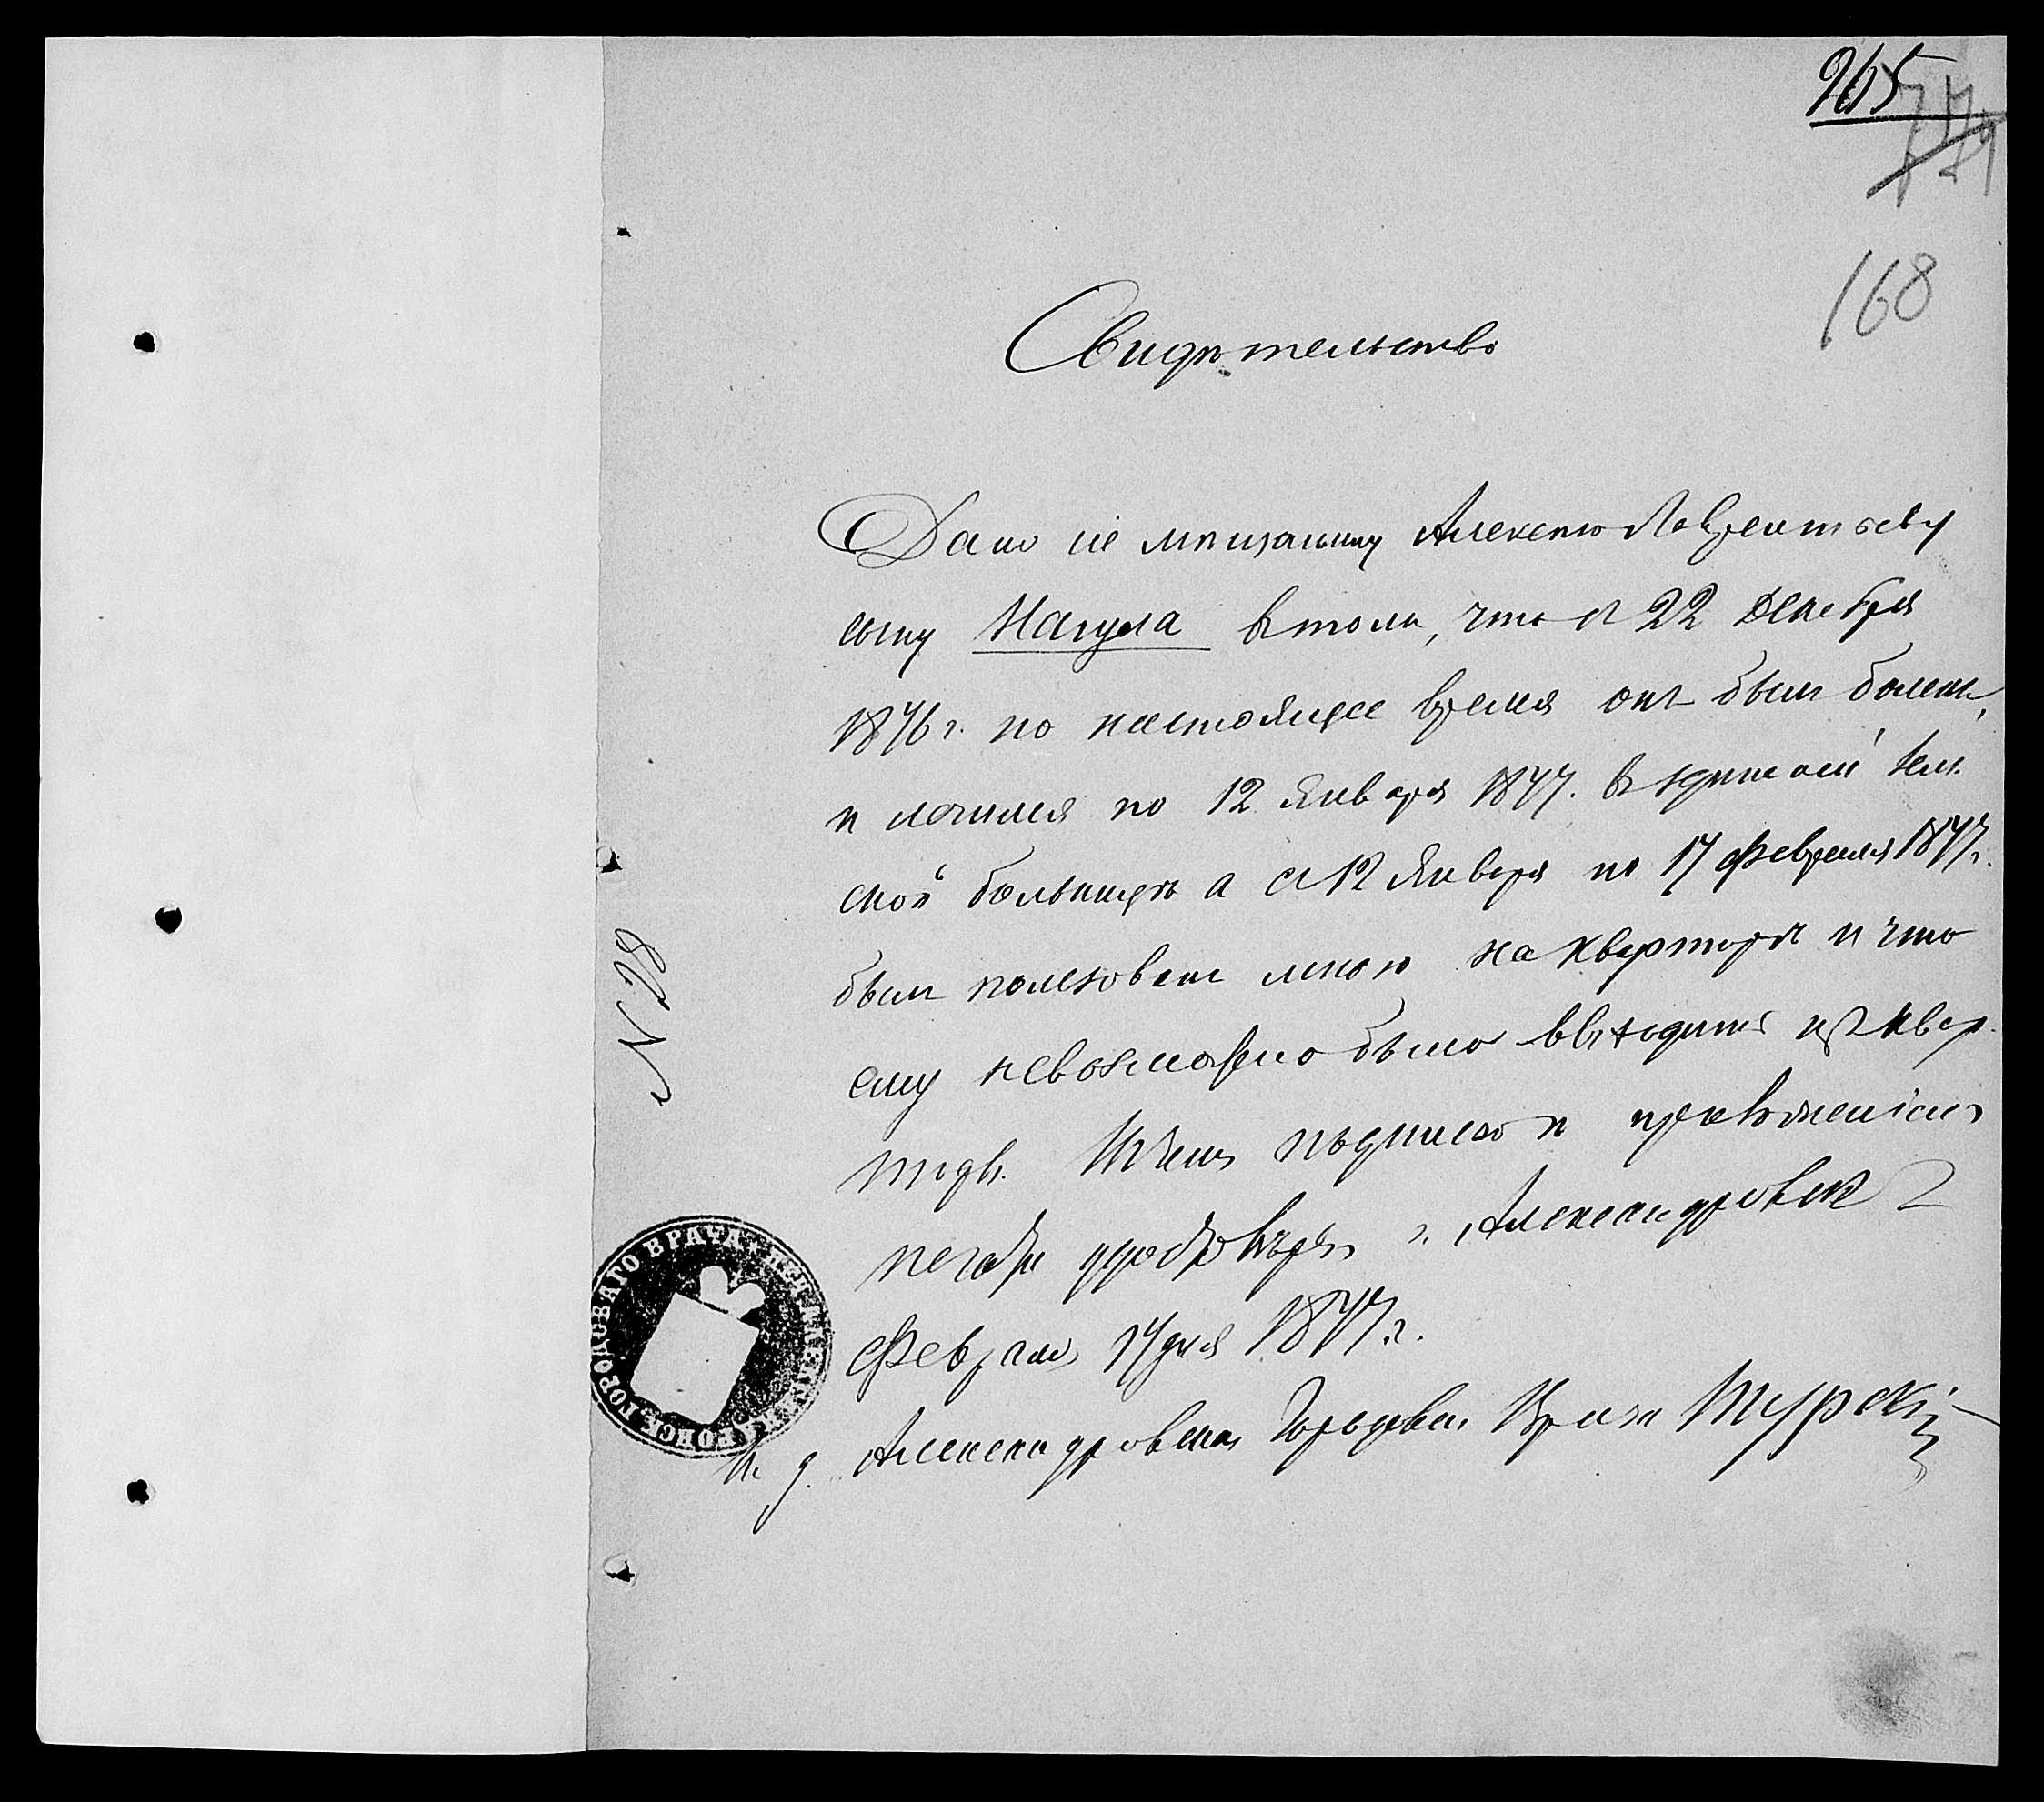 265
168
Свидѣтельство
Дано сіе мѣщанину Алексѣю Лаврентьеву
сыну Нагула въ томъ, что съ 22 Декабря
1876 г. по настоящее время онъ былъ боленъ,
и лечился по 12 Января 1877. въ здѣшней Зем-
ской больницѣ а съ 12 Января по 17 Февраля 1877 г.
былъ пользованъ мною на квартирѣ и что
ему невозможно было выходить изъ квар-
тиры. Въ чемъ подписью и приложеніемъ
печати удостовѣряю г. Александровскъ
Февраля 17 дня 1877 г.
И. д. Александровскаго Городоваго Врача Турскій
N 28
ГОРОДОВАГО ВРАЧА